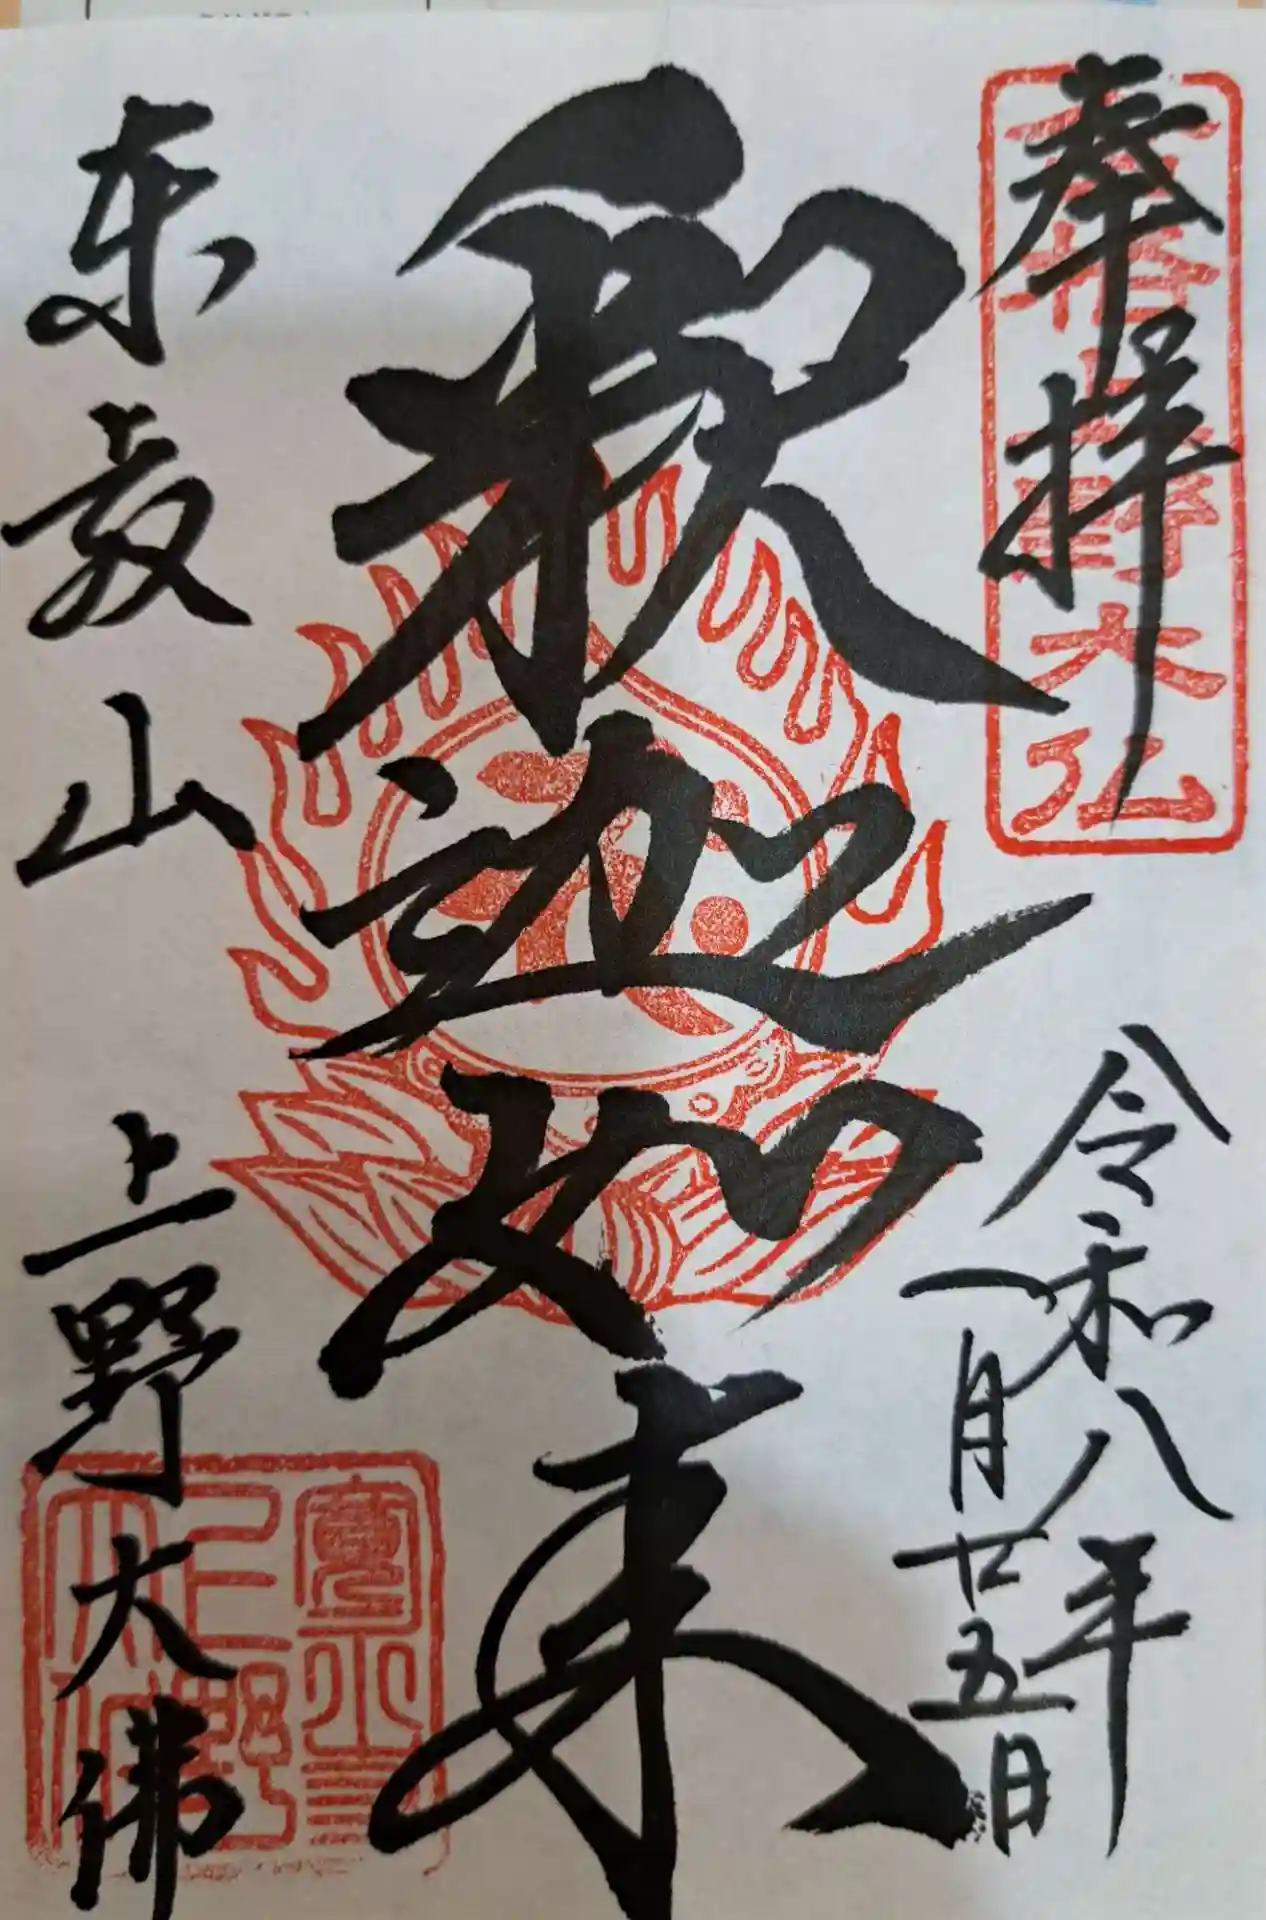 奉拝
合格上野大仏
令和八年
一月廿五日
釈迦如来
東叡山
上野大佛